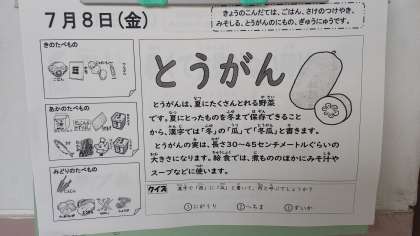 7月8日(金)
きょうのこんだては、ごはん、さけのつけやき、
みそしる、とうがんのにもの、ぎゅうにゅうです。
きのたべもの
とうがん
とうがんは、夏にたくさんとれる野菜
です。夏にとったものを冬まで保存できること
から、漢字では「冬」の「瓜」で「冬瓜」と書きます。
とうがんの実は、長さ30〜45センチメートルぐらいの
大きさになります。給食では、煮もののほかにみそ汁や
スープなどに使います。
あかのたべもの
みどりのたべもの
クイズ 漢字で「西」に「瓜」と書いて、何と呼ぶでしょうか?
①にがうり ②へちま ③すいか